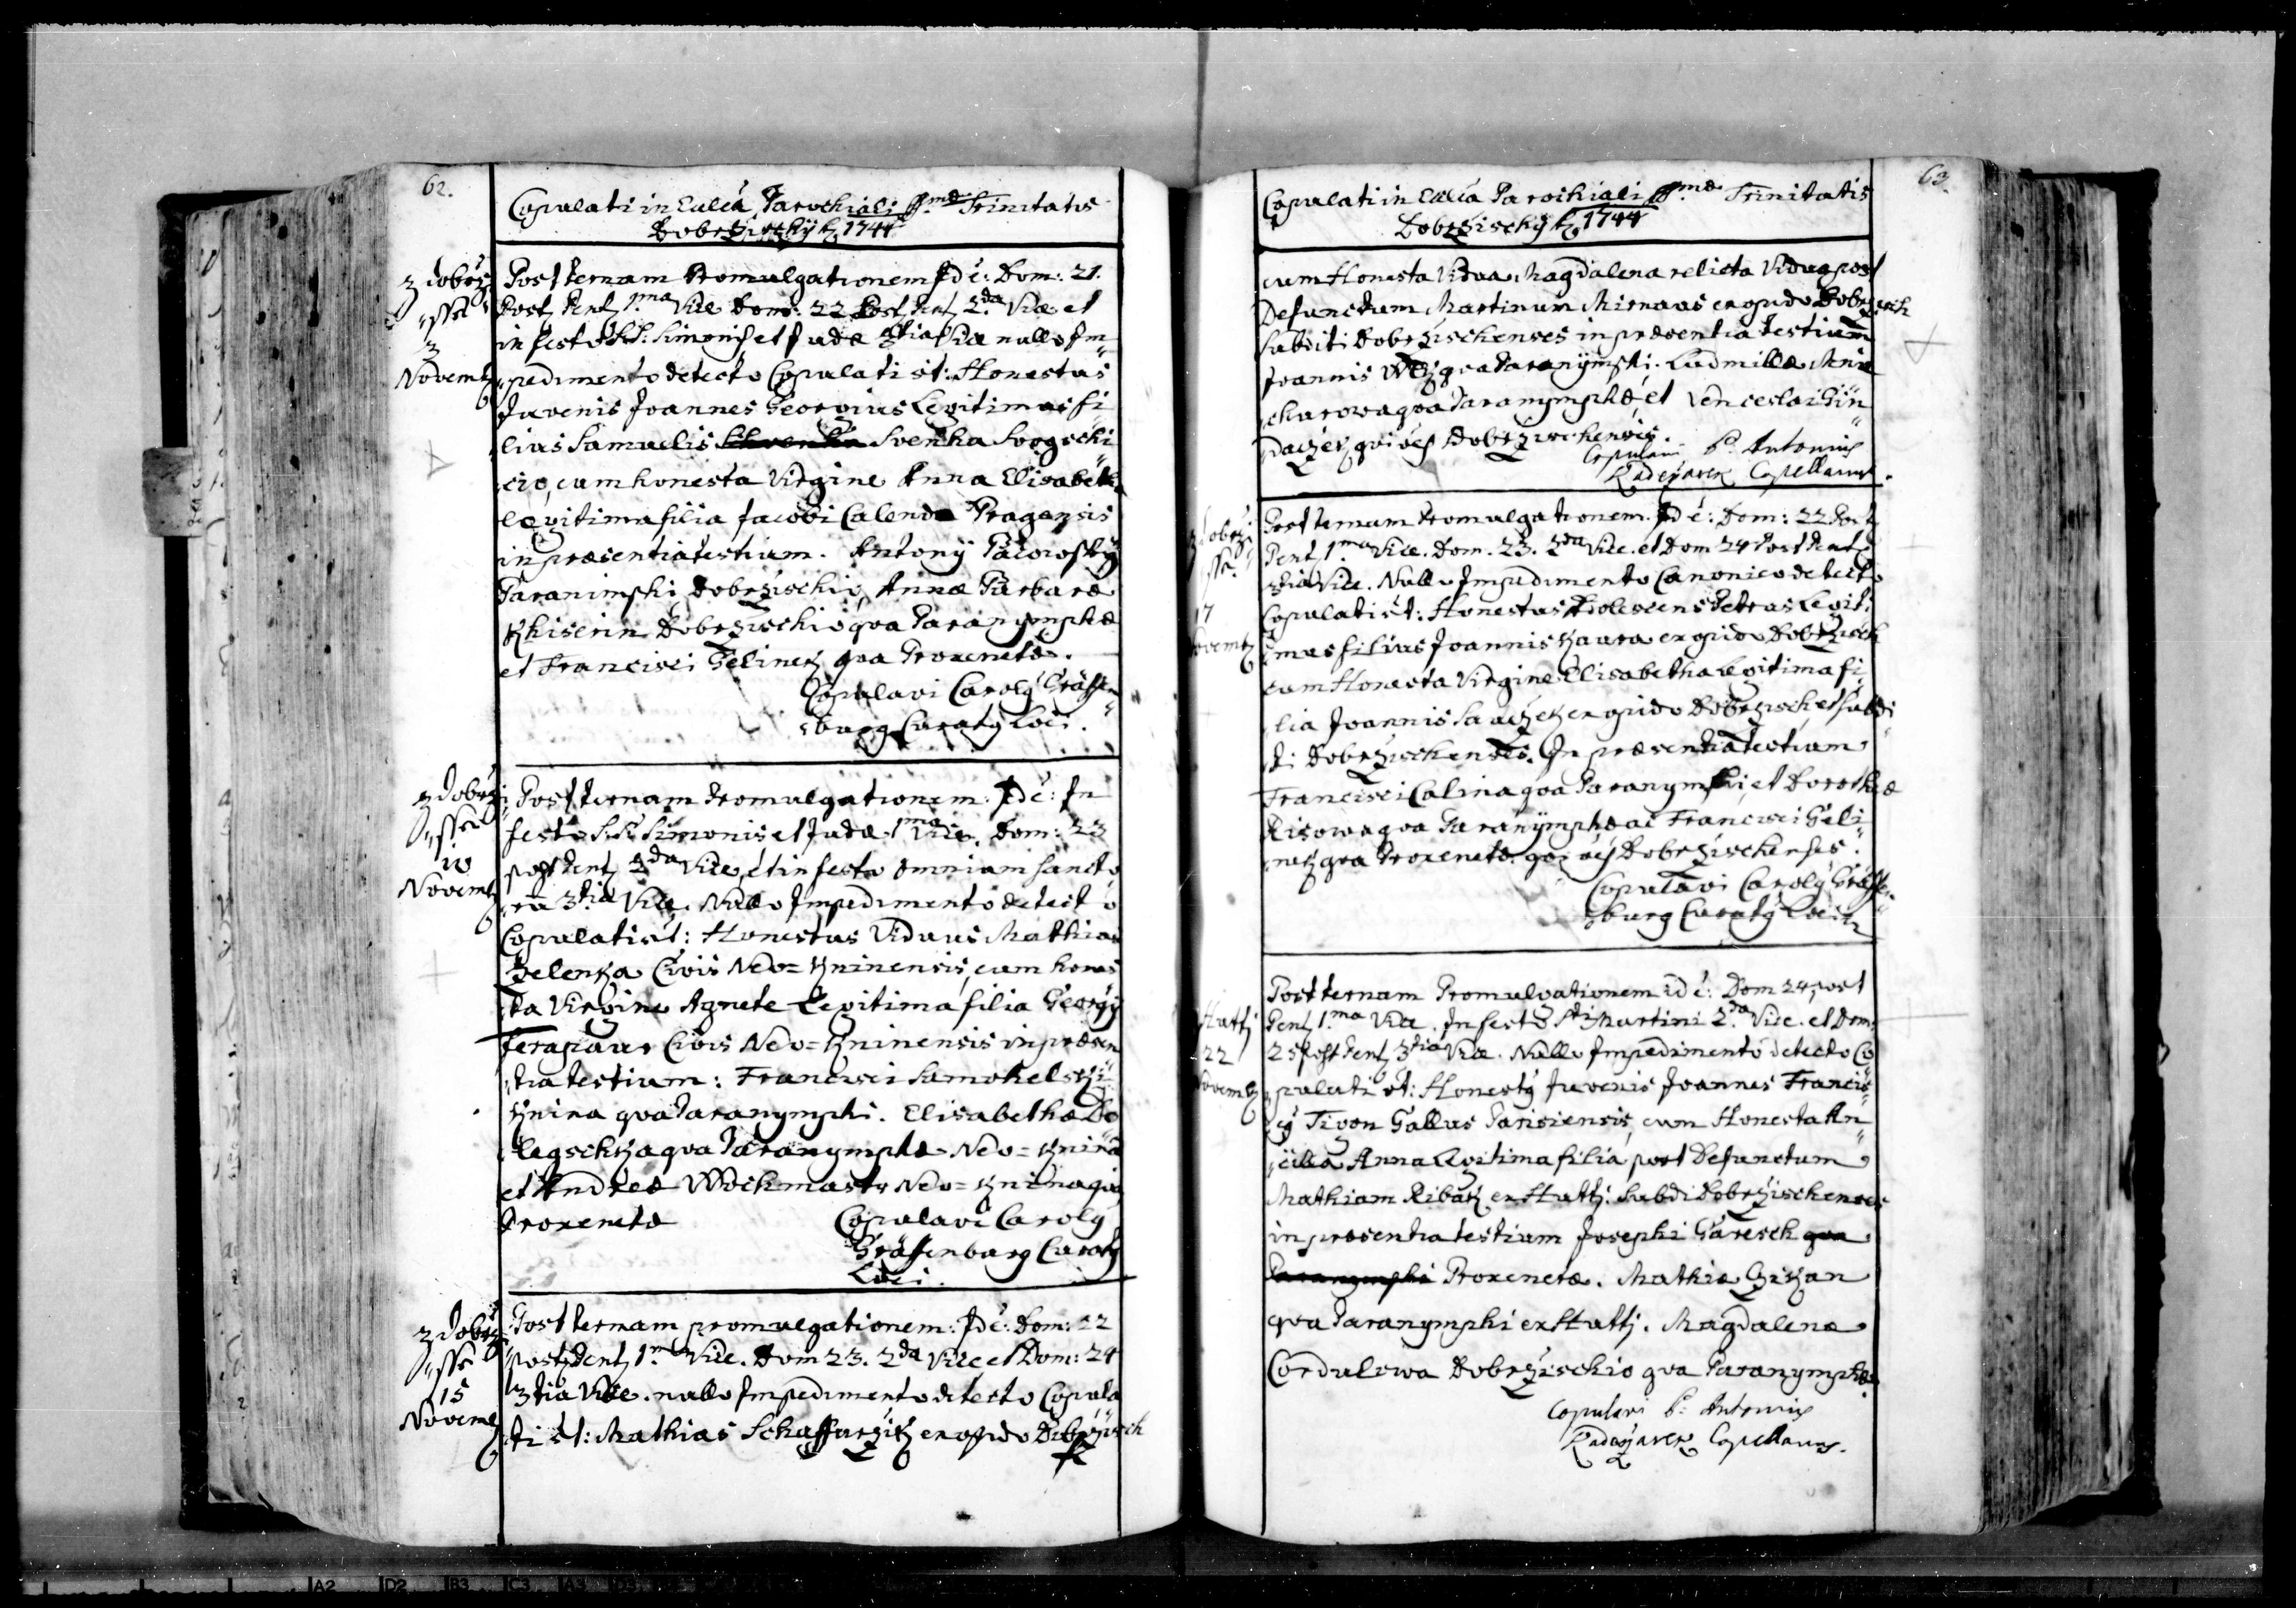 62.
Copulati in Eccłia Parochiali SSmæ Trinitatis
Dobrzischij 1744
z dobrzi
ssě
3
Novemb
Post ternam Promulgationem Id ē: Dom: 21.
Post Pent 1.ma Vice Dom: 22 Post Pent 2.da Vice et
in festo S.S. Simonis et Judæ 3tia Vice nullo Im„
„pedimento detecto Copulati sūt: Honestus
Juvenis Joannes Georgius Legitimus fi
lius Samuelis Svenka
cum honesta Virgine Anna Elisabeth
legitima filia Jacobi Calenda Pragensis
in præsentia testium. Antonij Pacowsky
Paranimphi Dobrzischio, Annæ Barbaræ
Khiserin Dobrzischio qva Paranymphæ
et Francisci Gelinek qva Proxenetæ.
Copulavi Carolg Gräffen„
„burg Curatg Loci.
z dobrzi
„ssě
10
Novemb
Post ternam Promulgationem: Id ē: In
festo S.S. Simonis et Judæ 1ma Vice. Dom: 23
post Pent 2da Vice, et in festo omnium sancto„
„rū 3tia Vice. Nullo Impedimento detecto
Copulati sūt: Honestus Viduus Mathias
Zelenka Civis Neo=Kninensis, cum hones
„ta Virgine Agnete Legitima filia Georgij
Civis Neo=Kninensis in præsen
„tia testium: Francisci Samohel
Knina qva Paranymphi. Elisabethæ
qva Paranymphæ Neo=Knina
et Andreæ Wochmastr Neo=Knina qva
Proxenetæ
Copulavi Carolg
Gräffenburg Curatg
Loci.
z dobrzi
„ssě
15
Novemb
Post ternam promulgationem: Id ē: Dom: 22
post Pent 1.ma Vice. Dom 23. 2da Vice et Dom: 24
3tia Vice. nullo Impedimento detecto Copula
„ti sūt: Mathias Schaffarzik ex opido Dobrzisch
63.
Copulati in Eccłia Parochiali SSmæ Trinitatis
Dobrzischij 1744
cum Honesta Vidua Magdalena relicta Vidua post
Defunctum Martinum ex opido Dobrzisch
Subditi Dobrzischenses in præsentia testium
Joannis qva Paranymphi. Ludmillæ
qva Paranymphæ, et Venceslai Hin„
„daczek, Dobrzischensis.
Copulavi P. Antonius
Capellanus.
z dobrzi
ssě.
17
Novemb
Post ternam Promulgationem. Id ē: Dom: 22 Post
Pent 1.ma Vice. Dom. 23. 2da Vice. et Dom 24 Post Pent
3tia Vice. Nullo Impedimento Canonico detecto
Copulati sūt: Honestus Adolescens Petrus Legiti
mus filius Joannis Kaura ex opido Dobrzisch
cum Honesta Virgine Elisabetha Legitima fi„
„lia Joannis ex opido Dobrzisch, et Subdi„
„ti Dobrzischenses. In præsentia testium
Francisci Calina qva Paranymphi, et Dorotheæ
Risowa qva Paranymphæ ac Francisci Geli„
„nek qva Proxenetæ. Dobrzischenses.
Copulavi Carolg Gräffen„
„burg Curatg Loci
Huttj
22
Novemb
Post ternam Promulgationem id ē: Dom 24, post
Pent 1.ma Vice. In festo Sti Martini 2.da Vice. et Dom:
25 post Pent 3tia Vice. Nullo Impedimento detecto Co„
„pulati sūt: Honestg Juvenis Joannes Francis„
„cg Tivon Gallus Parisiensis, cum Honesta An„
„cilla Anna Legitima filia post Defunctum
Mathiam Ribak ex Huttj. Subdi Dobrzischenses
in præsentia testium Josephi Garesch qva
Paranymphi Proxenetæ. Mathiæ
qva Paranymphi ex Huttj. Magdalenæ
Cordulowa Dobrzischio qva Paranymphæ.
Copulavi P. Antonius
Capellanus.